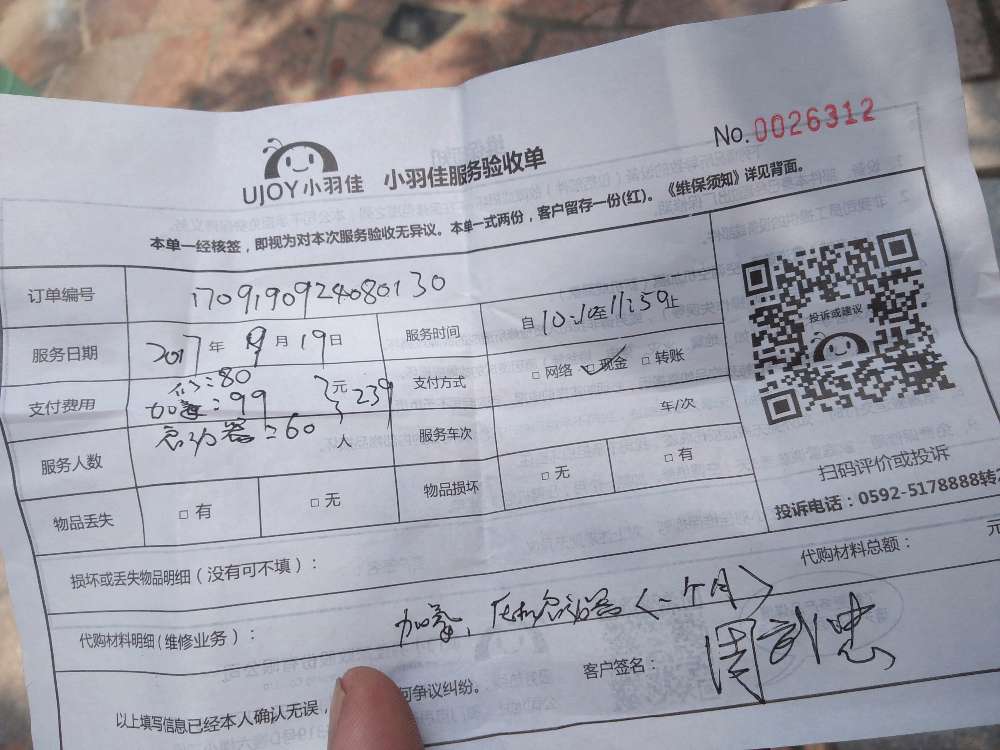 No.0026312
UJOY小羽佳 小羽佳服务验收单
本单一经核签，即视为对本次服务验收无异议。本单一式两份，客户留存一份(红)。《维保须知》详见背面。
订单编号 1709190924080130
服务日期 2017年9月19日 服务时间 自10:10至11:59止
支付费用 :80 加氟:99 启动器:60 元 239 支付方式 □网络 □现金 □转账
服务人数 人 服务车次 车/次
物品丢失 □有 □无 物品损坏 □无 □有
投诉或建议
扫码评价或投诉
投诉电话：0592-5178888转
损坏或丢失物品明细(没有可不填)：
代购材料总额： 元
代购材料明细(维修业务)： 加氟、压机启动器<一个月>
客户签名：
以上填写信息已经本人确认无误， 何争议纠纷。